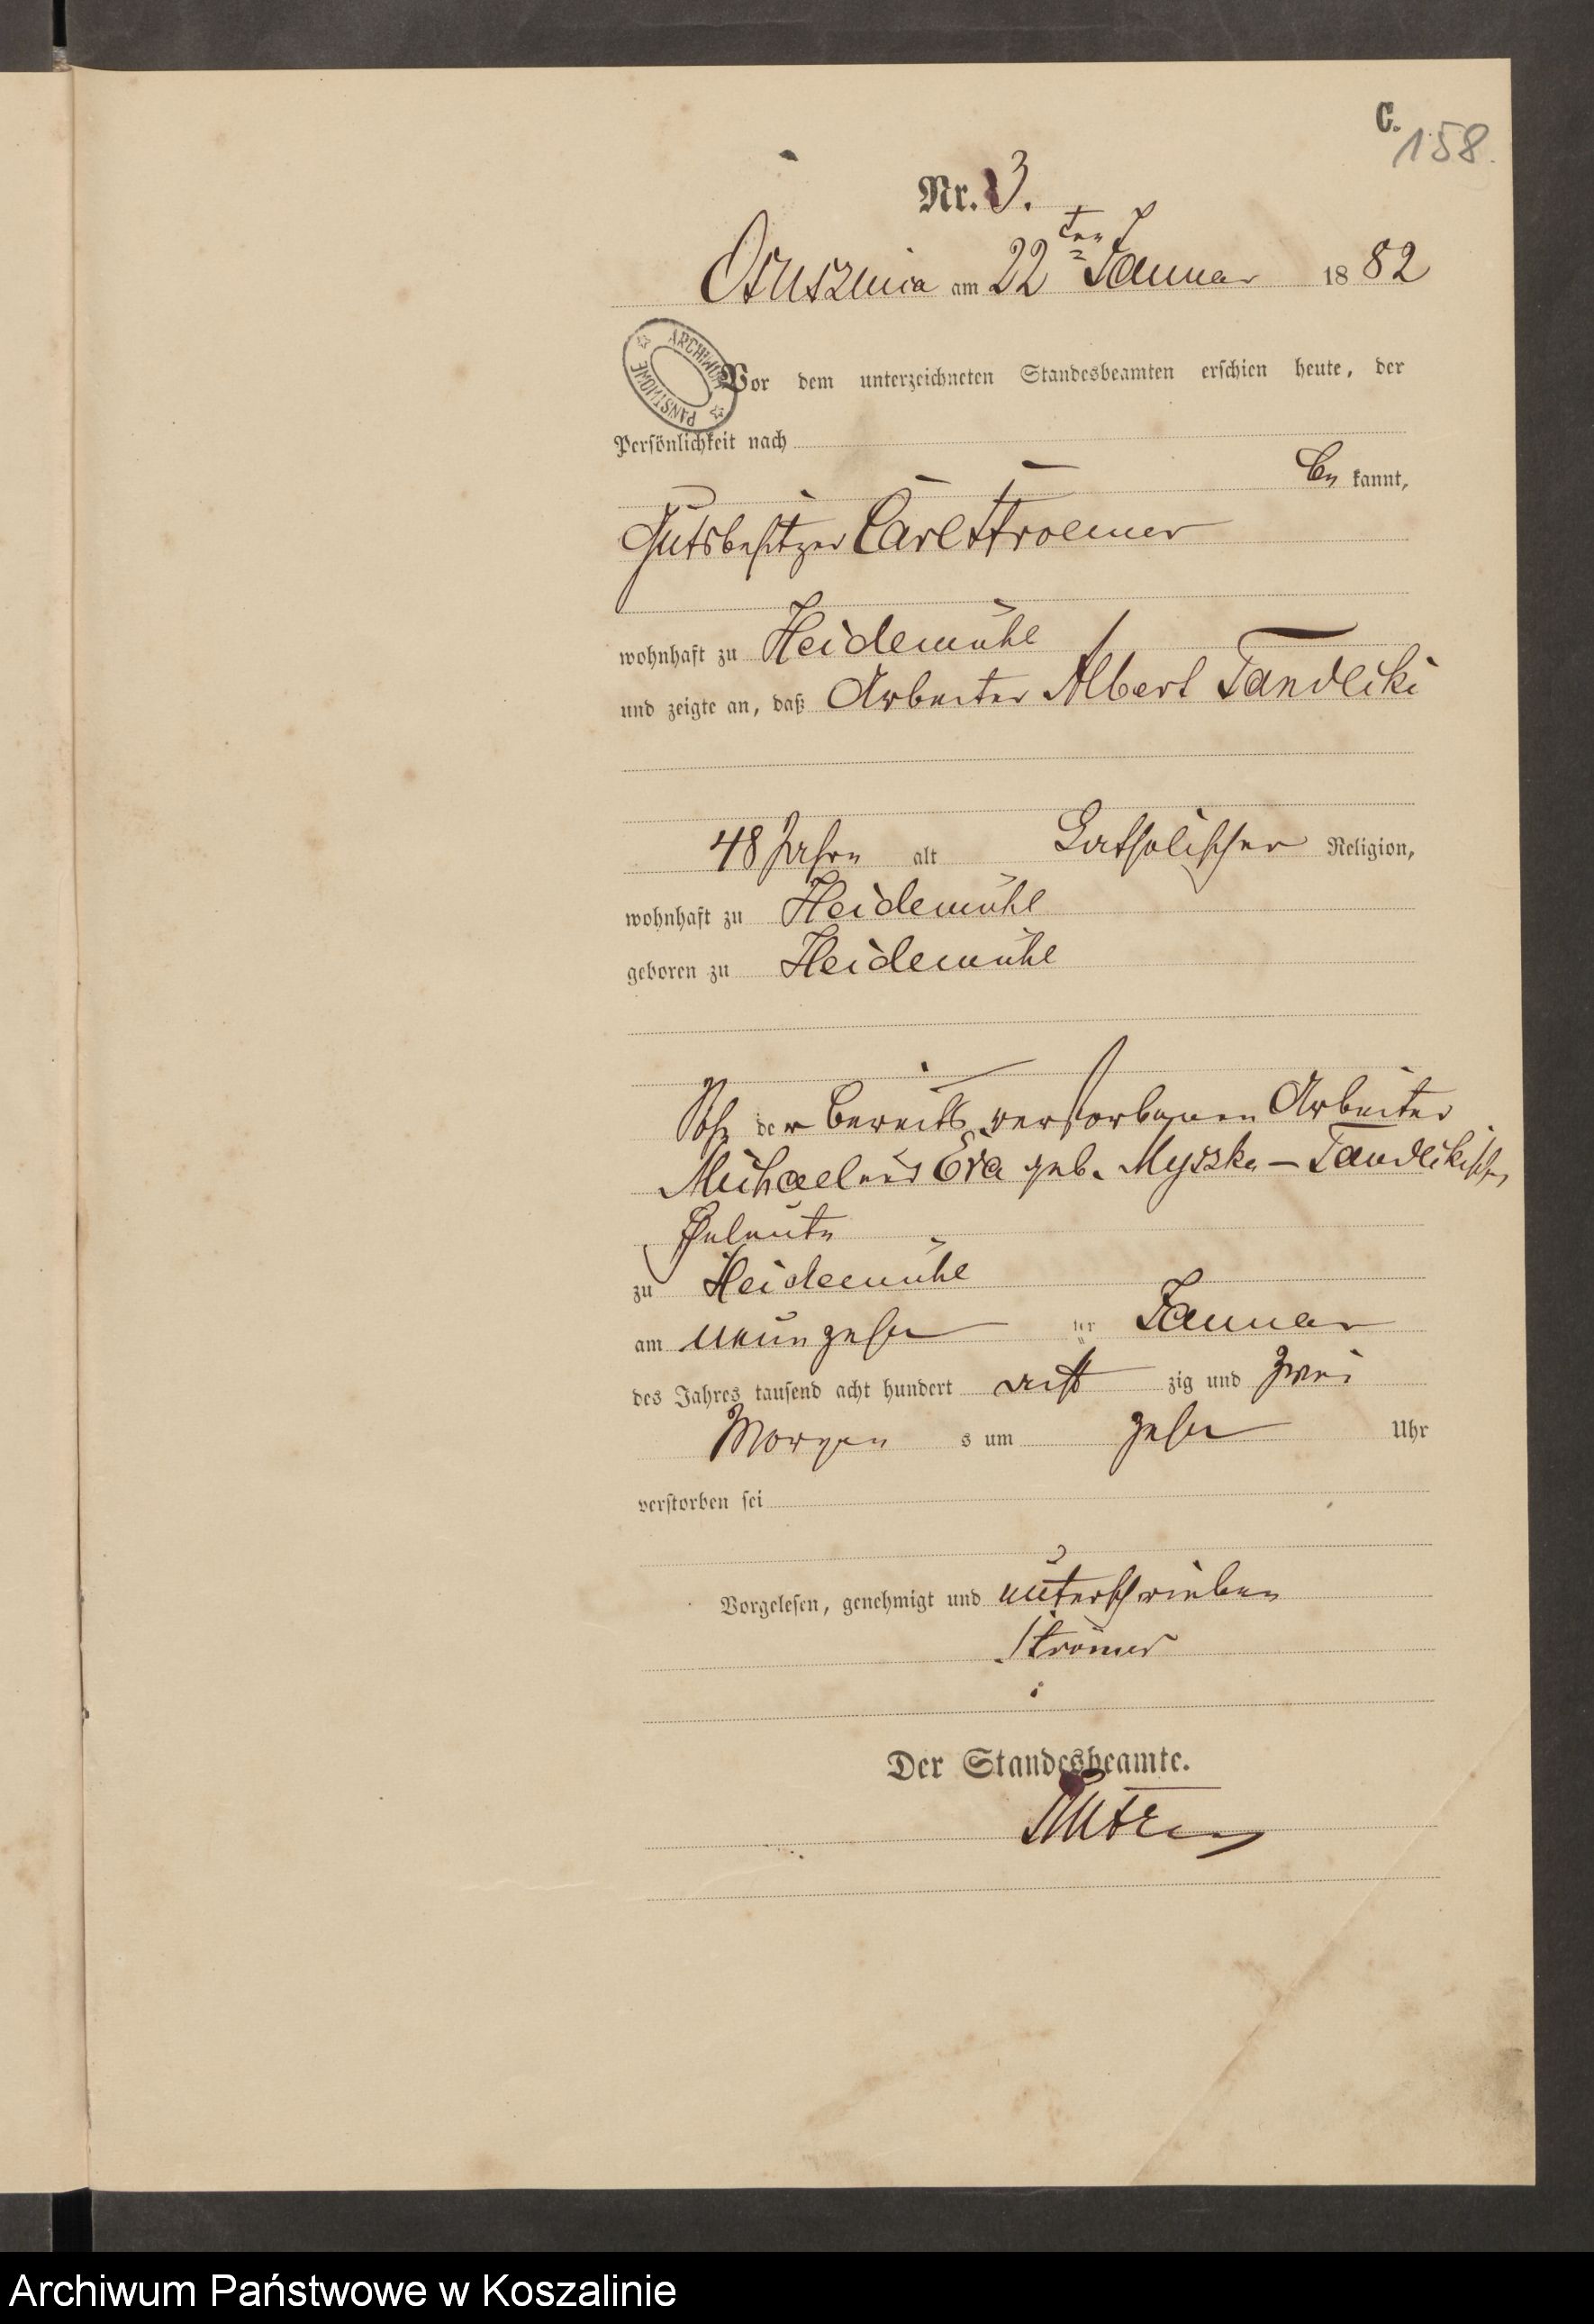 C.
158.
Nr. 3.
Ossusznica am 22ten Januar 1882
ARCHIWUM PAŃSTWOWE
Vor dem unterzeichneten Standesbeamten erschien heute, der
Persönlichkeit nach
be kannt,
Gutsbesitzer Carl Stroemer
wohnhaft zu Heidemühl
und zeigte an, daß Arbeiter Albert Tandecki
48 Jahre alt Catholischer Religion,
wohnhaft zu Heidemühl
geboren zu Heidemühl
Sohn der bereits verstorbenen Arbeiter
Michael und Eva geb. Myszke – Tandeckischen
Eheleute
zu Heidemühl
am neunzehn ten Januar
des Jahres tausend acht hundert acht zig und zwei
Morgen s um zehn Uhr
verstorben sei
Vorgelesen, genehmigt und unterschrieben
Strömer
Der Standesbeamte.
Archiwum Państwowe w Koszalinie